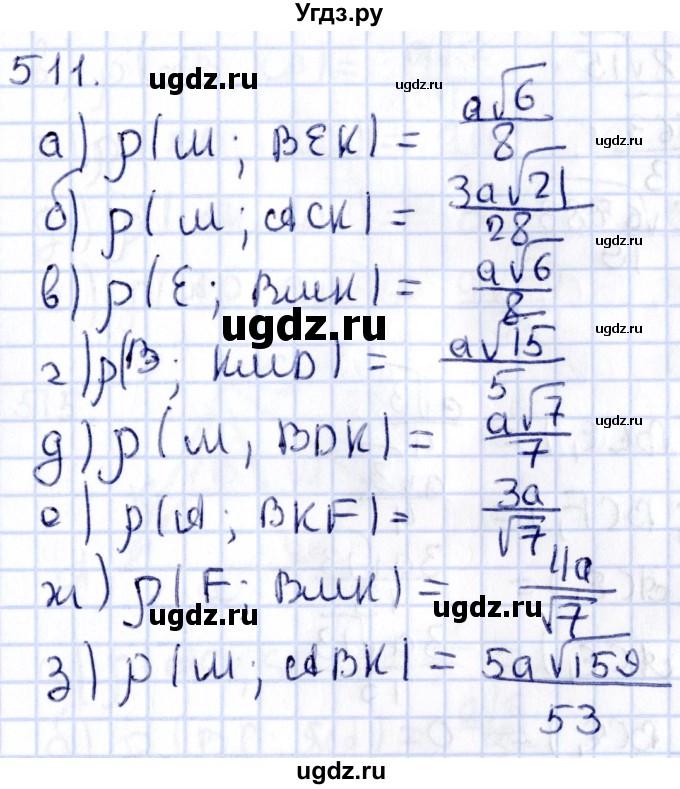 Угдз.ру
511.
ugdz.ru
ugdz.ru
а) ρ(M; BEK) = a√6/8
ugdz.ru
б) ρ(M; ACK) = 3a√21/28
ugdz.ru
в) ρ(E; BMK) = a√6/8
ugdz.ru
г) ρ(B; KMD) = a√15/5
д) ρ(M, BDK) = a√7/7
ugdz.ru
е) ρ(A; BKF) = 3a/√7
ж) ρ(F; BMK) = 4a/√7
ugdz.ru
ugdz.ru
ugdz.ru
з) ρ(M; ABK) = 5a√159/53
ugdz.ru
ugdz.ru